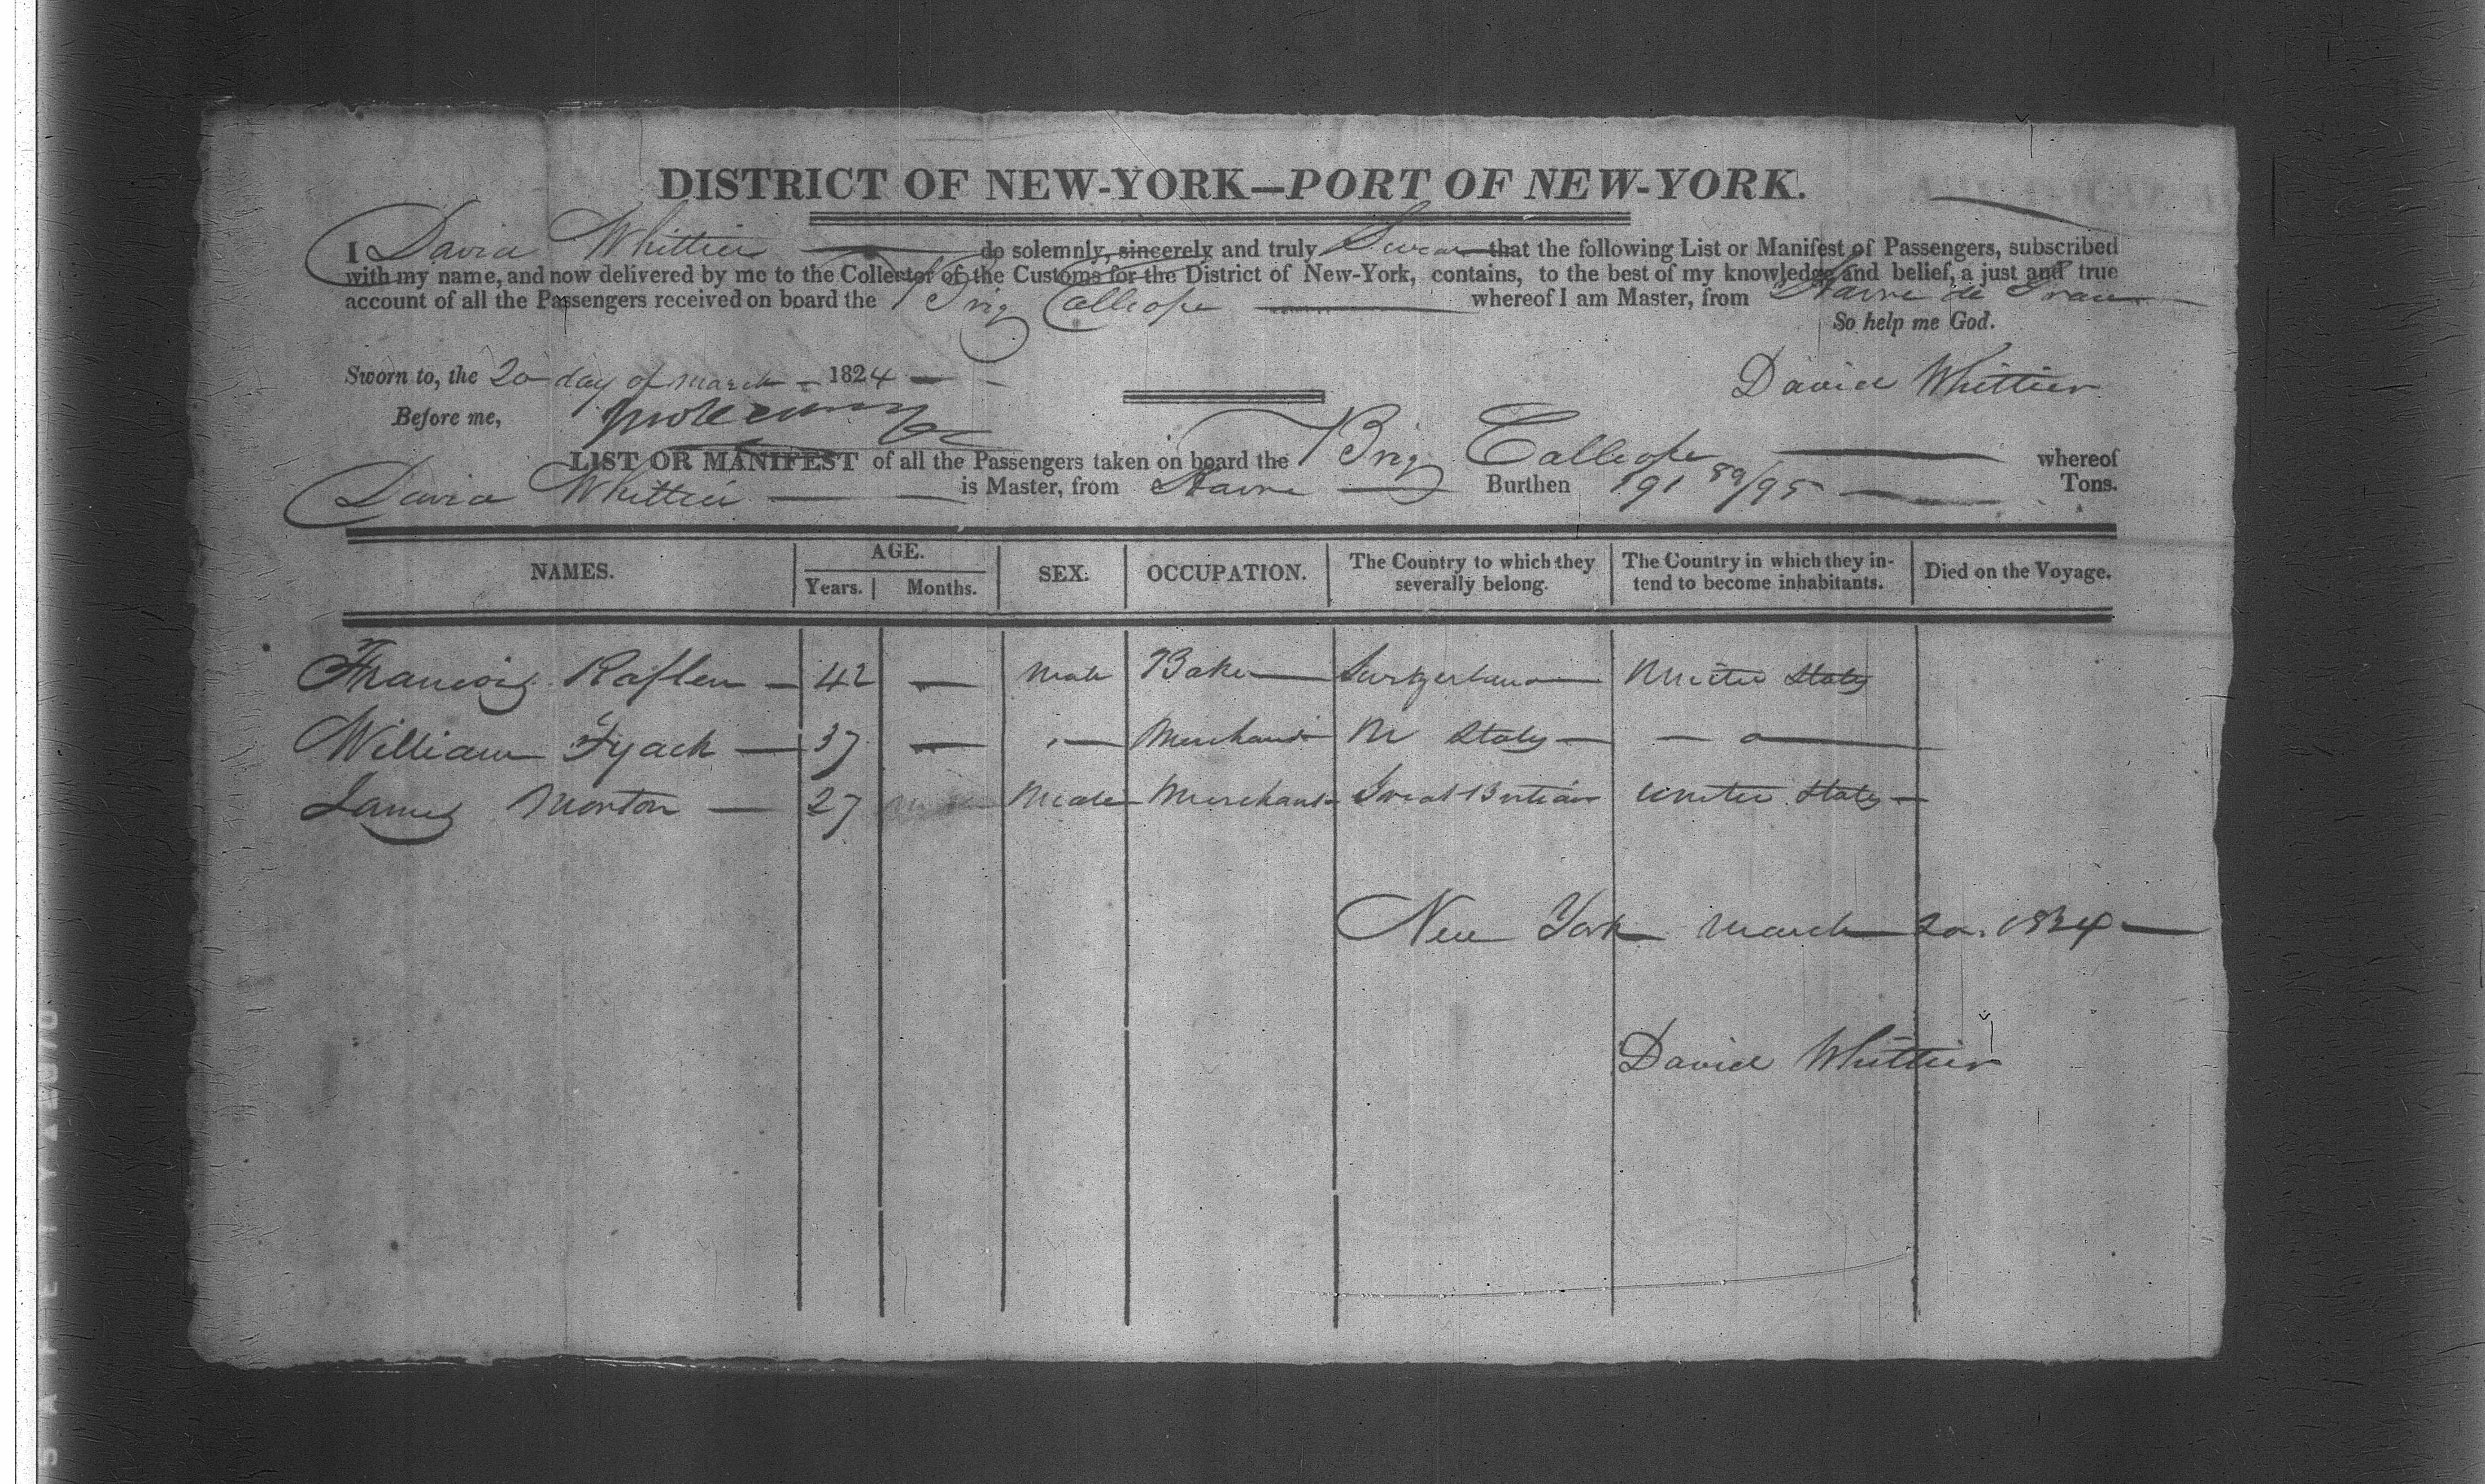 DISTRICT OF NEW-YORK—PORT OF NEW-YORK.
I David Whittier do solemnly, sincerely and truly Swear that the following List or Manifest of Passengers, subscribed
with my name, and now delivered by me to the Collector of the Customs for the District of New-York, contains, to the best of my knowledge and belief, a just and true
account of all the Passengers received on board the Brig Calliope whereof I am Master, from Havre de
So help me God.
Sworn to, the 20 day of March 1824
David Whittier
Before me,
LIST OR MANIFEST of all the Passengers taken on board the Brig Calliope whereof
David Whittier is Master, from Havre Burthen 191 89/95 Tons.
NAMES. AGE. Years. Months. SEX. OCCUPATION. The Country to which they severally belong. The Country in which they intend to become inhabitants. Died on the Voyage.
Francois 42 — Male Baker Switzerland United States
William Fyack — 37 — Merchant U States —
James Morton — 27 Male Merchant Great Britian United States —
New York March 20. 1824 —
David Whittier